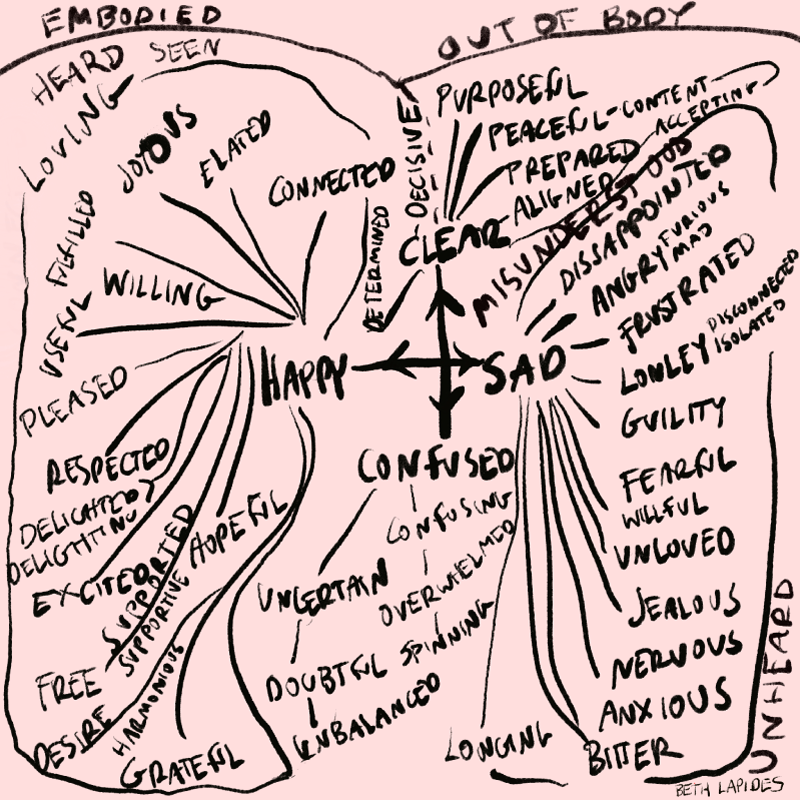 EMBODIED
OUT OF BODY
HEARD SEEN
LOVING
JOYOUS
ELATED
CONNECTED
DECISIVE
DETERMINED
PURPOSEFUL
PEACEFUL-CONTENT
ACCEPTING
PREPARED
ALIGNED
CLEAR
MISUNDERSTOOD
DISSAPPOINTED
ANGRY FURIOUS
MAD
FRUSTRATED
LONLEY DISCONNECTED
ISOLATED
FULFILLED
USEFUL
WILLING
PLEASED
HAPPY
SAD
GUILITY
FEARFUL
WILLFUL
UNLOVED
JEALOUS
NERVOUS
ANXIOUS
BITTER
LONGING
UNHEARD
RESPECTED
DELIGHTED
DELIGHTING
EXCITED
SUPPORTED
SUPPORTIVE
HOPEFUL
FREE
DESIRE
HARMONIOUS
GRATEFUL
CONFUSED
CONFUSING
UNCERTAIN
OVERWHELMED
DOUBTFUL
SPINNING
UNBALANCED
BETH LAPIDES